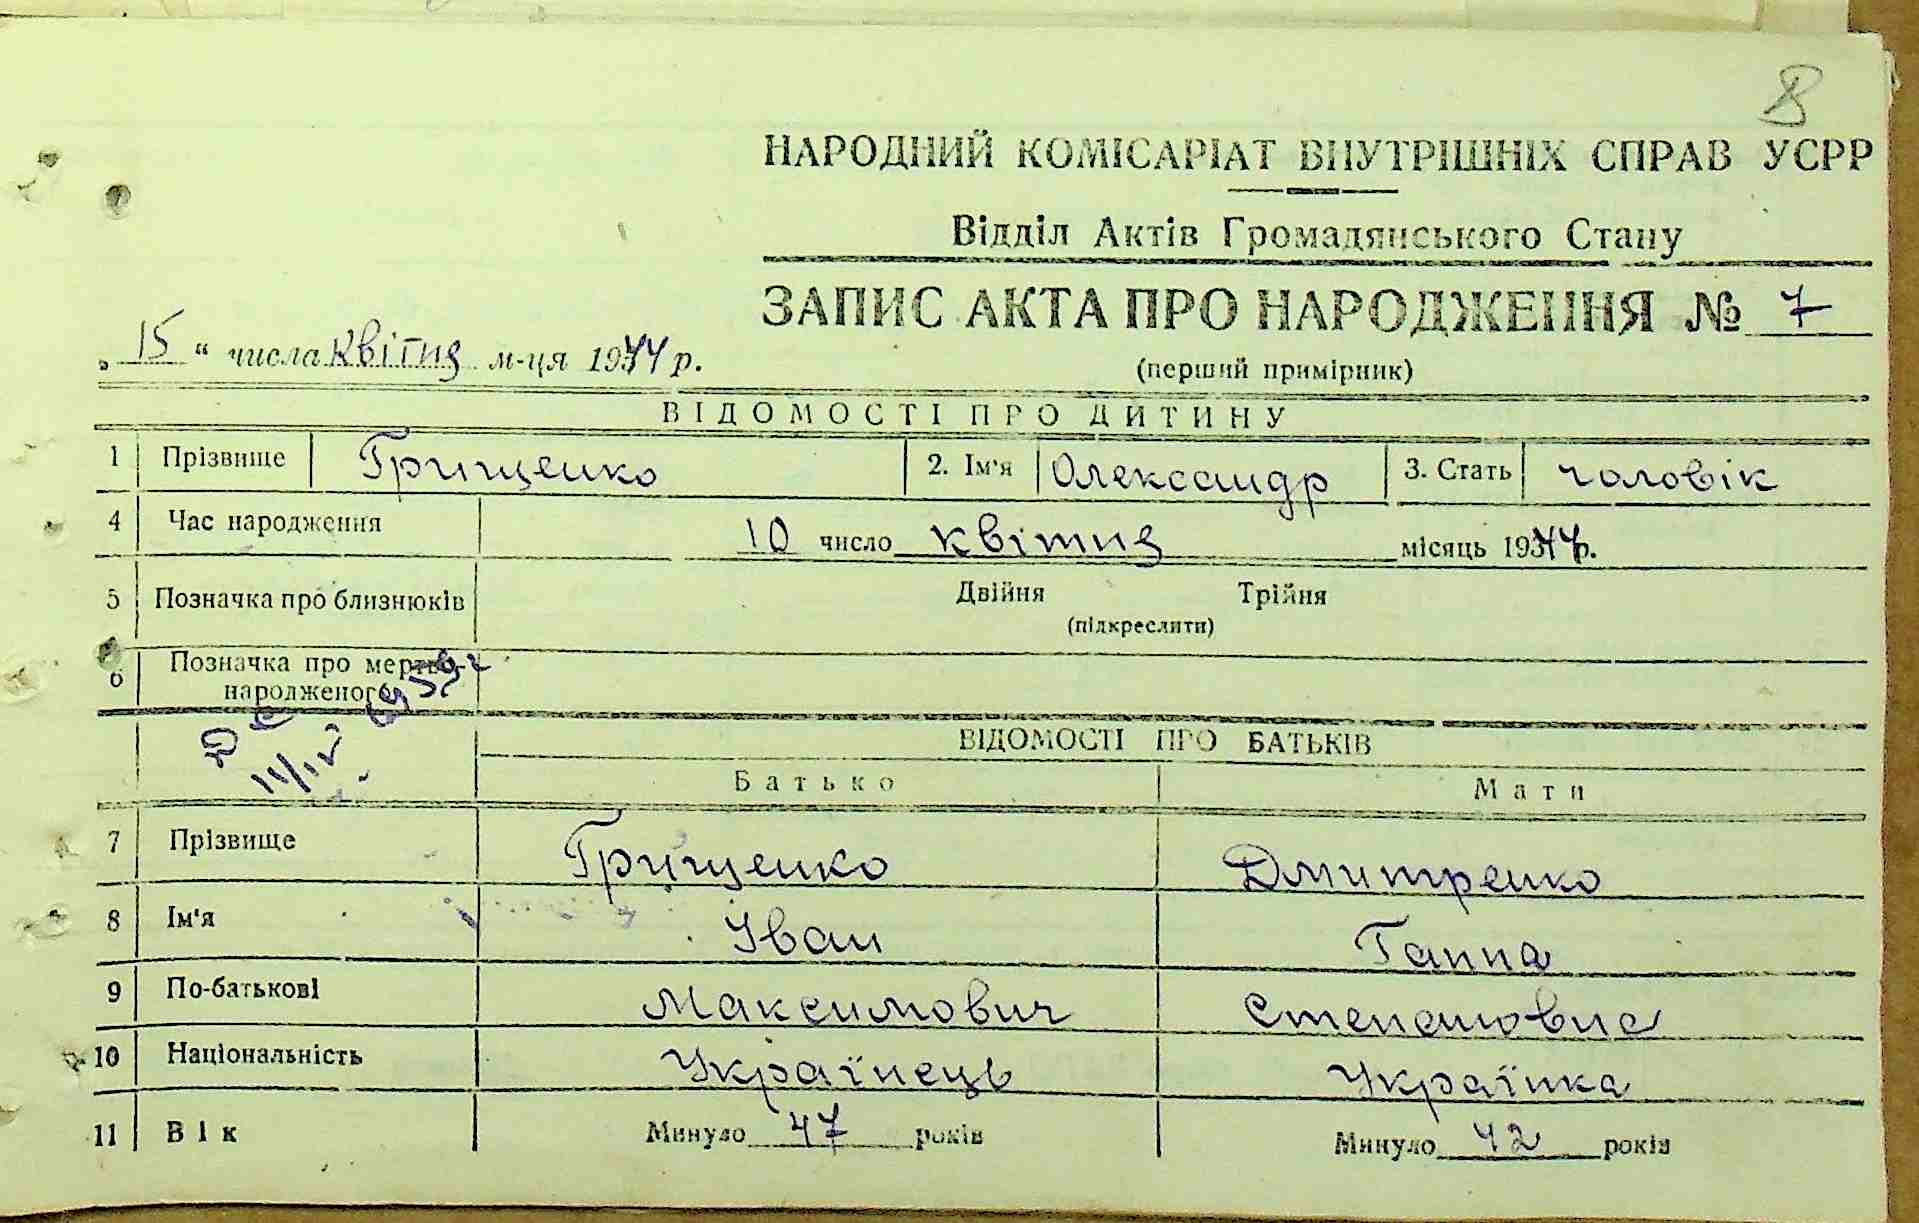 8
НАРОДНИЙ КОМІСАРІАТ ВНУТРІШНІХ СПРАВ УСРР
Відділ Актів Громадянського Стану
ЗАПИС АКТА ПРО НАРОДЖЕННЯ № 7
„ 15 “ числа квітня м-ця 1944 р.
(перший примірник)
ВІДОМОСТІ ПРО ДИТИНУ
1 Прізвище Грищенко 2. Ім'я Олександр 3. Стать чоловік
4 Час народження 10 число квітня місяць 1944 р.
5 Позначка про близнюків Двійня Трійня
(підкреслити)
6 Позначка про мертво-
народженого
ВІДОМОСТІ ПРО БАТЬКІВ
Батько Мати
7 Прізвище Грищенко Дмитренко
8 Ім'я Іван Ганна
9 По-батькові Максимович Степановна
10 Національність Українець Українка
11 Вік Минуло 47 років Минуло 42 років